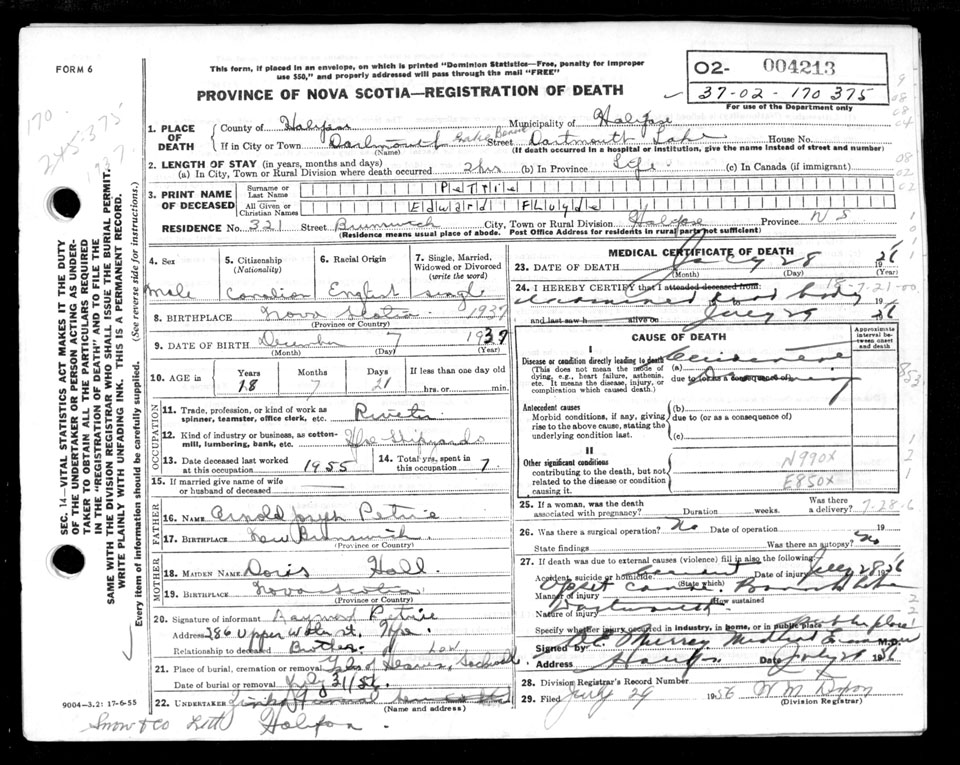 FORM 6
This form, if placed in an envelope, on which is printed "Dominion Statistics—Free, penalty for improper
use $50," and properly addressed will pass through the mail "FREE"
PROVINCE OF NOVA SCOTIA—REGISTRATION OF DEATH
02- 004213
37-02-170375
For use of the Department only
170.
245.375
1. PLACE OF DEATH
County of Halifax Municipality of Halifax
If in City or Town Dartmouth Street Dartmouth Lake House No.
(Name) (If death occurred in a hospital or institution, give the name instead of street and number)
2. LENGTH OF STAY (in years, months and days)
(a) In City, Town or Rural Division where death occurred 2 hrs (b) In Province Life (c) In Canada (if immigrant)
3. PRINT NAME OF DECEASED
Surname or Last Name Petrie
All Given or Christian Names Edward Floyde
RESIDENCE No. 321 Street Brunswick City, Town or Rural Division Halifax Province N S
(Residence means usual place of abode. Post Office Address for residents in rural parts not sufficient)
4. Sex
male
5. Citizenship (Nationality)
Canadian
6. Racial Origin
English
7. Single, Married, Widowed or Divorced (write the word)
single
8. BIRTHPLACE Nova Scotia 1937
(Province or Country)
9. DATE OF BIRTH December 7 1937
(Month) (Day) (Year)
10. AGE in Years Months Days If less than one day old
18 7 21 hrs. or min.
OCCUPATION
11. Trade, profession, or kind of work as spinner, teamster, office clerk, etc. Riveter
12. Kind of industry or business, as cotton-mill, lumbering, bank, etc. Hfx Shipyards
13. Date deceased last worked at this occupation 1955
14. Total yrs. spent in this occupation
15. If married give name of wife or husband of deceased
FATHER
16. NAME Arnold Joseph Petrie
17. BIRTHPLACE New Brunswick
(Province or Country)
MOTHER
18. MAIDEN NAME Doris Hall
19. BIRTHPLACE Nova Scotia
(Province or Country)
20. Signature of informant Raymond Petrie
Address 286 Upper Water St. Hfx.
Relationship to deceased Brother
21. Place of burial, cremation or removal Gates of Heaven, Sackville
Date of burial or removal July 31/56.
22. UNDERTAKER Funeral
(Name and address)
9004-3.2: 17-6-55
Snow & Co Ltd Halifax
MEDICAL CERTIFICATE OF DEATH
23. DATE OF DEATH July 28 1956
(Month) (Day) (Year)
24. I HEREBY CERTIFY that I attended deceased from:
examined dead body
and last saw h alive on July 29 1956
CAUSE OF DEATH
Approximate interval between onset and death
I
Disease or condition directly leading to death (a)
(This does not mean the mode of dying, e.g., heart failure, asthenia, etc. It means the disease, injury, or complication which caused death.)
due to (or as a consequence of)
Antecedent causes (b)
Morbid conditions, if any, giving rise to the above cause, stating the underlying condition last.
due to (or as a consequence of)
(c)
II
Other significant conditions
contributing to the death, but not related to the disease or condition causing it.
N990X
E850X
25. If a woman, was the death associated with pregnancy? Duration weeks. Was there a delivery?
26. Was there a surgical operation? No Date of operation 19
State findings Was there an autopsy? No
27. If death was due to external causes (violence) fill in also the following:
Accident, suicide or homicide accident Date of injury July 28 1956
(State which)
Manner of injury Upset canoe
How sustained
Nature of injury
Specify whether injury occurred in industry, in home, or in public place Public place
Signed by Murray Medical Examiner M.D.
Address Halifax Date July 29 1956
28. Division Registrar's Record Number
29. Filed July 29 1956
(Division Registrar)
SEC. 14—VITAL STATISTICS ACT MAKES IT THE DUTY
OF THE UNDERTAKER OR PERSON ACTING AS UNDER-
TAKER TO OBTAIN ALL THE PARTICULARS REQUIRED
IN THE "REGISTRATION OF DEATH" AND TO FILE THE
SAME WITH THE DIVISION REGISTRAR WHO SHALL ISSUE THE BURIAL PERMIT.
WRITE PLAINLY WITH UNFADING INK. THIS IS A PERMANENT RECORD.
Every item of information should be carefully supplied. (See reverse side for instructions.)